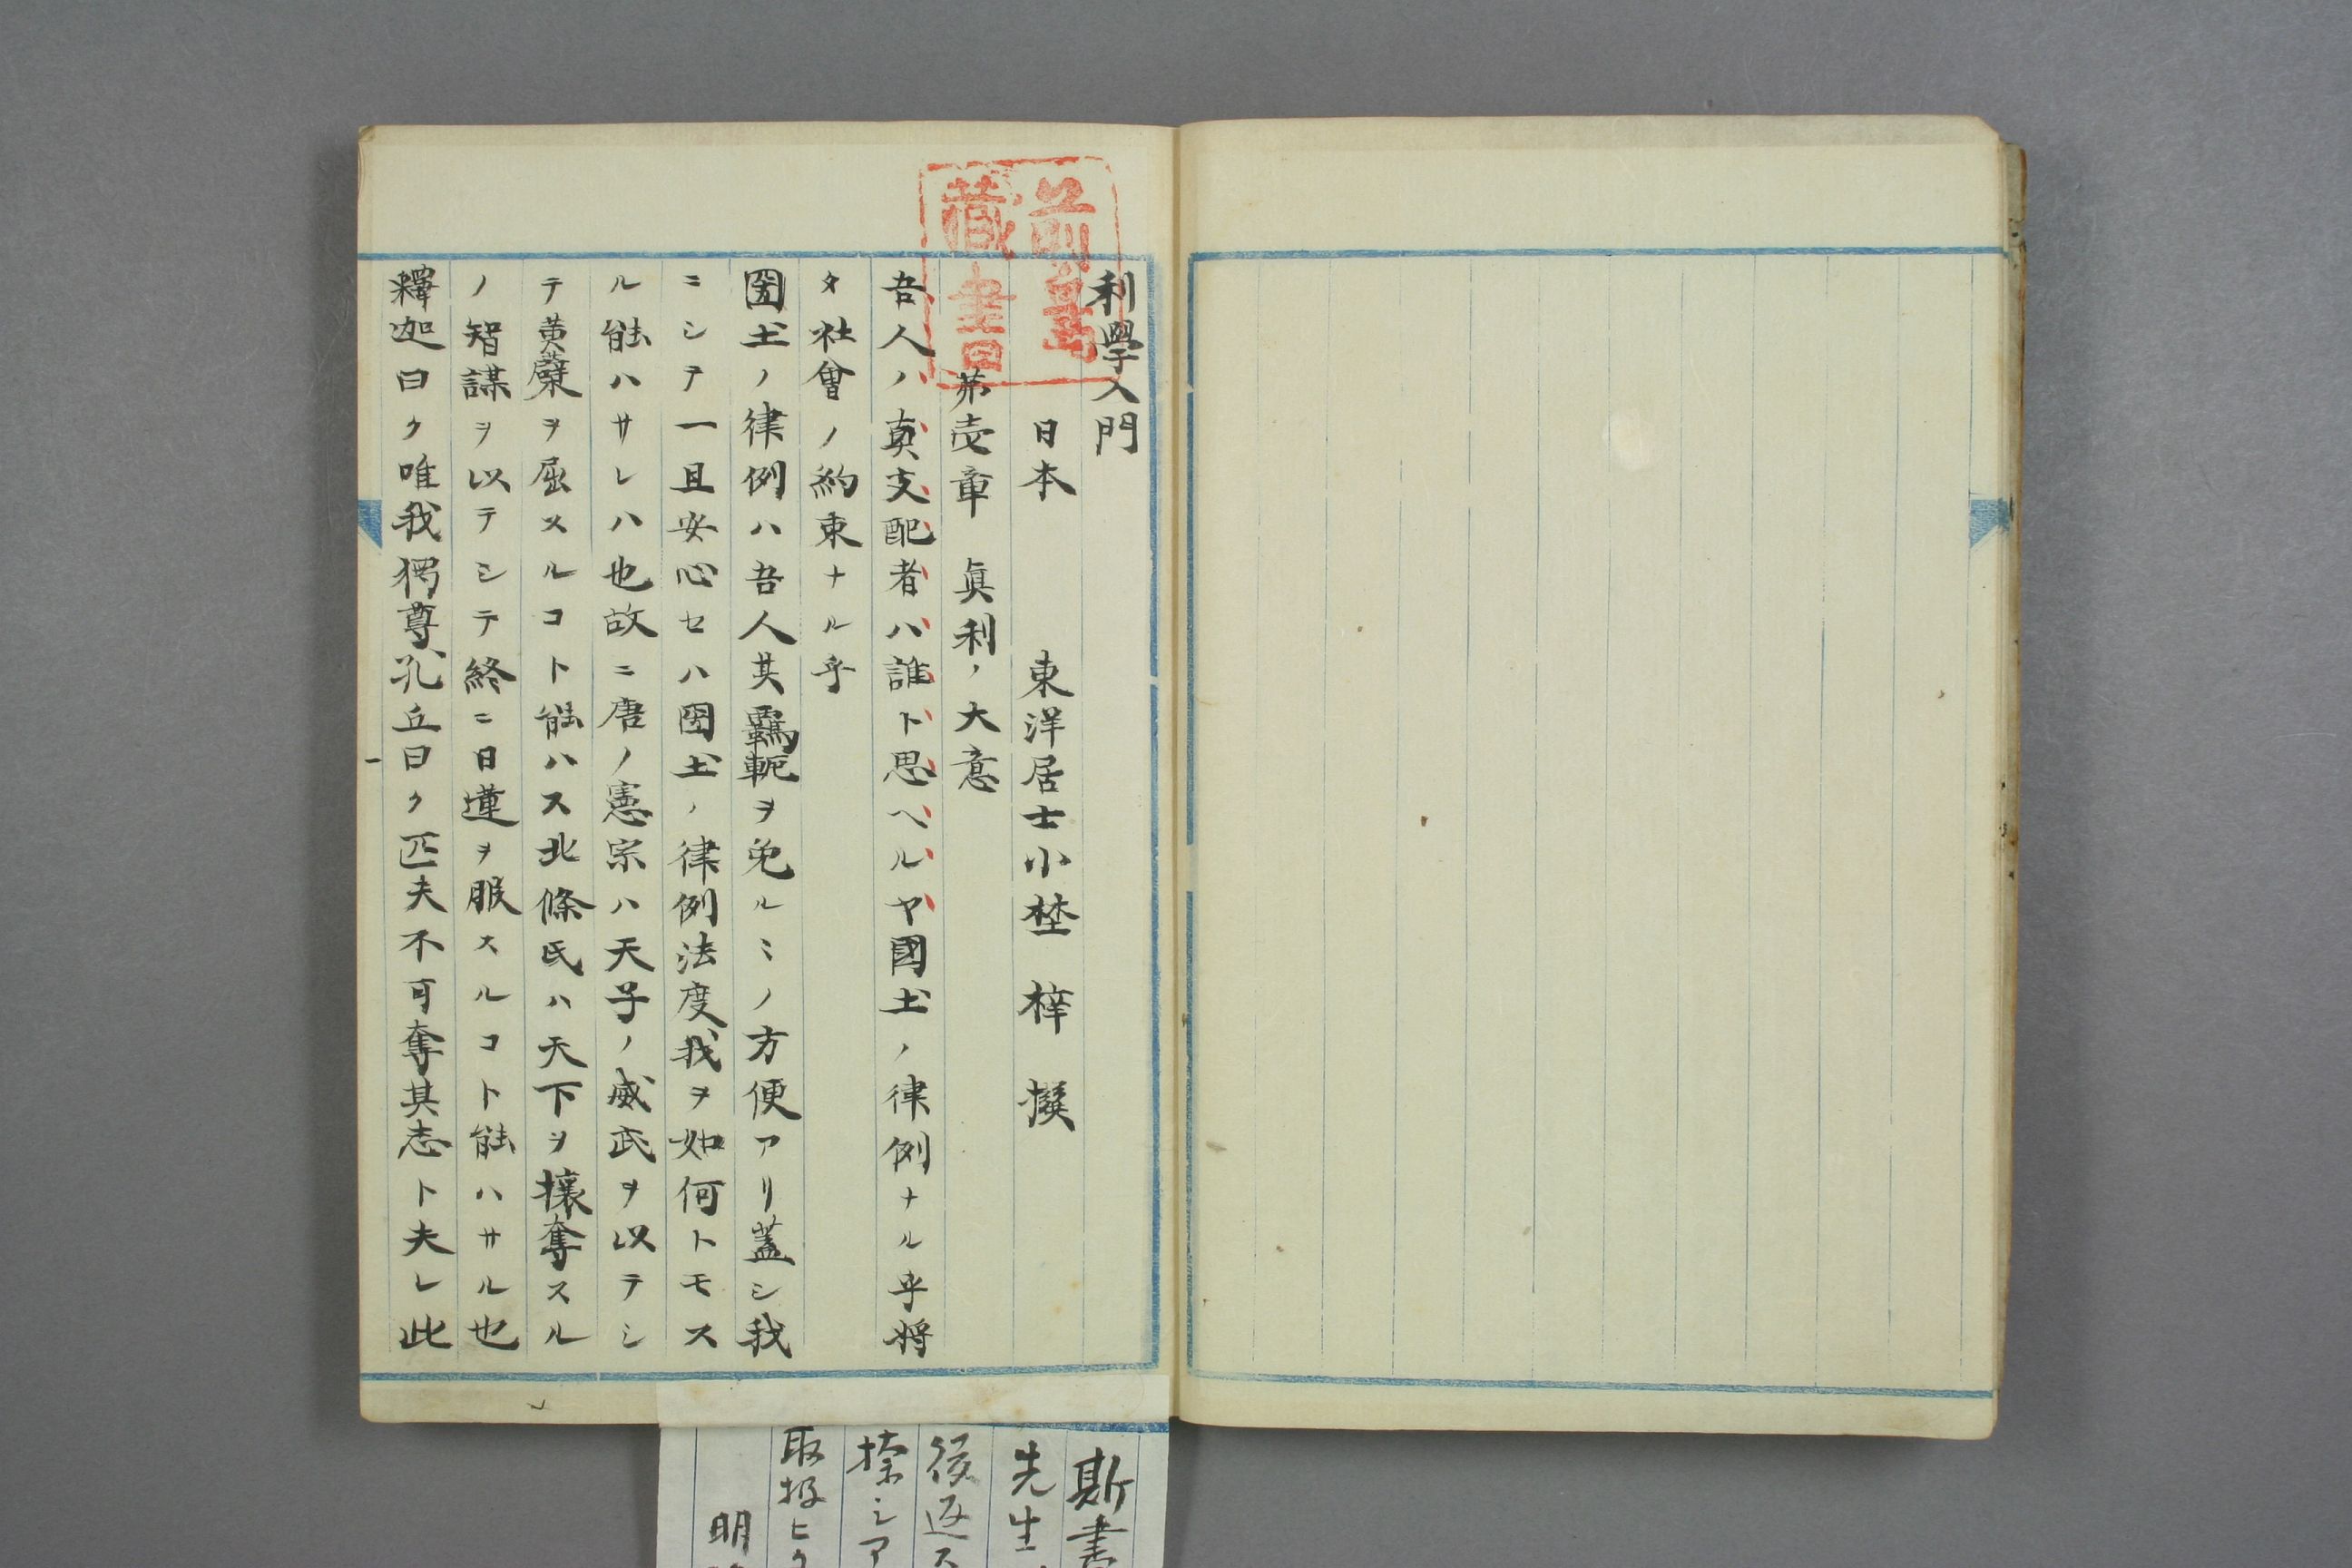 利學入門
日本　東洋居士小埜梓撰
第壱章　眞利ノ大意
吾人ノ真支配者ハ誰ト思ヘルヤ國土ノ律例ナル乎将
タ社會ノ約束ナル乎
国土ノ律例ハ吾人其羈軛ヲ免ルヽノ方便アリ蓋シ我
ニシテ一旦安心セハ国土ノ律例法度我ヲ如何トモス
ル能ハサレハ也故ニ唐ノ憲宗ハ天子ノ威武ヲ以テシ
テ黄蘗ヲ屈スルコト能ハス北條氏ハ天下ヲ攘奪スル
ノ智謀ヲ以テシテ終ニ日蓮ヲ服スルコト能ハサル也
釋迦曰ク唯我獨尊孔丘曰ク匹夫不可奪其志ト夫レ此
一
藏書
斯書
先生
後返ス
取扱ヒ
明